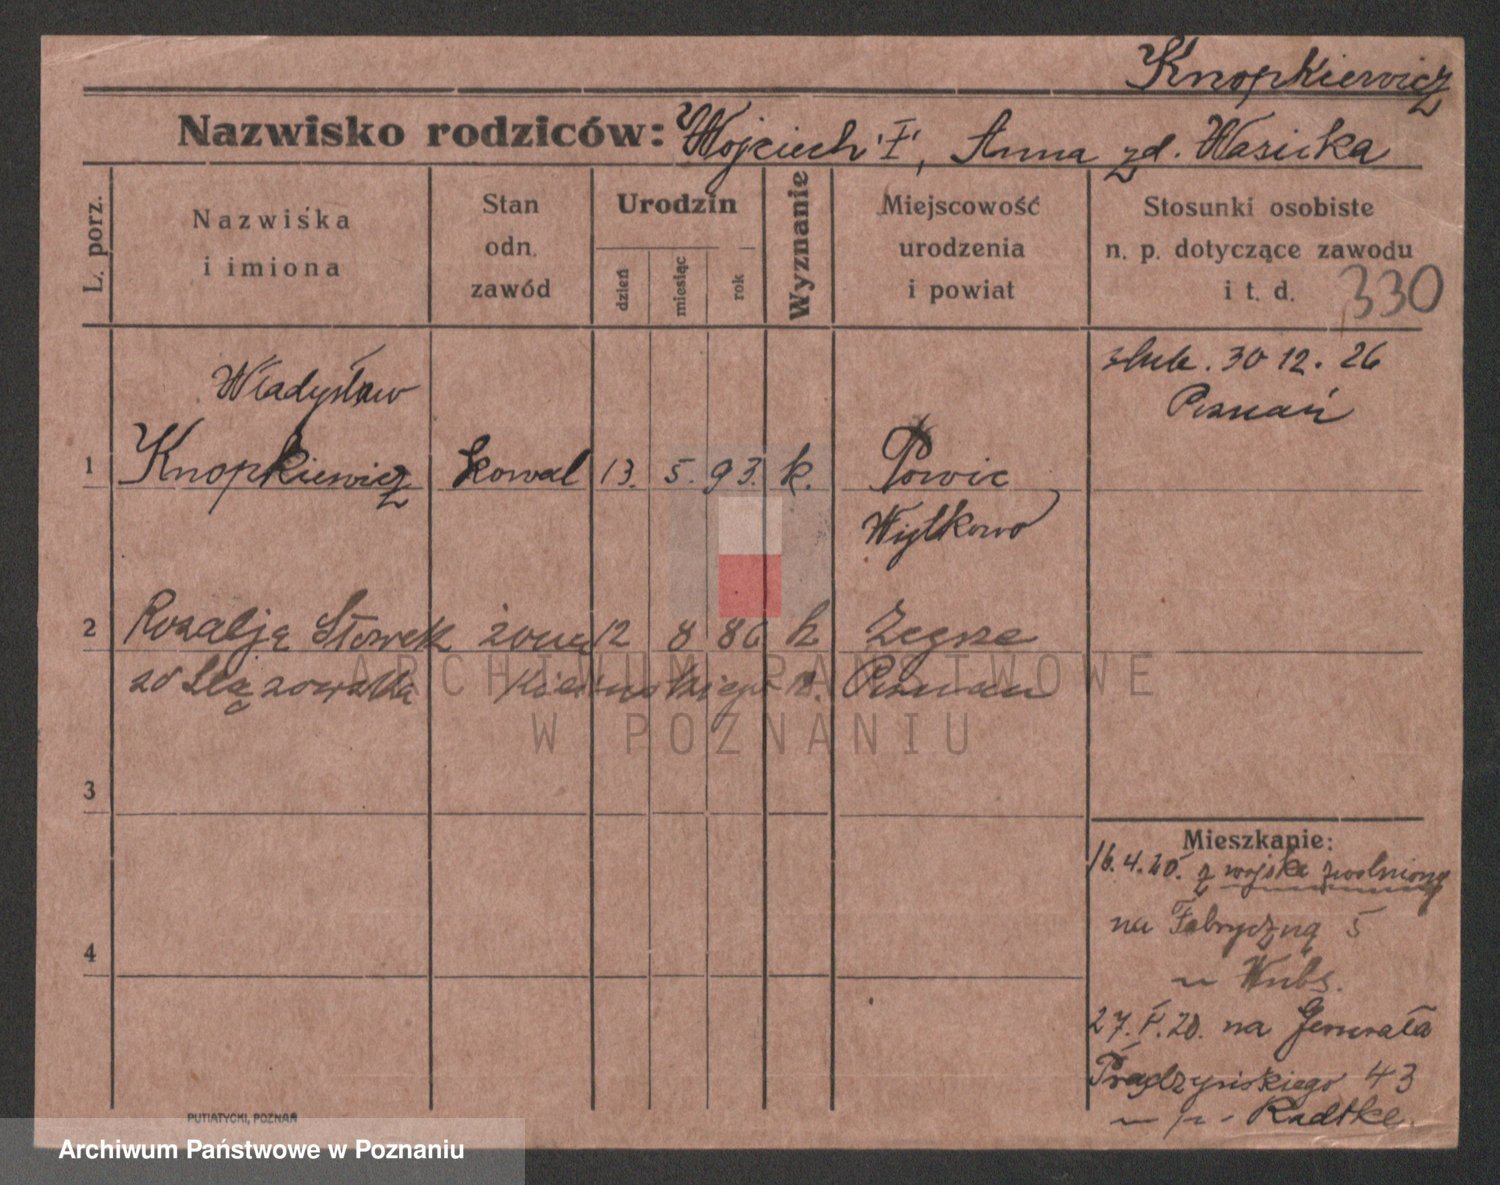 Knopkiewicz
Nazwisko rodziców: Wojciech 'I', Anna zd. Wasicka
L. porz.
Nazwiska
i imiona
Stan
odn.
zawód
Urodzin
dzień
miesiąc
rok
Wyznanie
Miejscowość
urodzenia
i powiat
Stosunki osobiste
n. p. dotyczące zawodu
i t. d. 330
ślub. 30 12. 26
Poznań
Władysław
1 Knopkiewicz kowal 13. 5. 93. k. Powic
Witkowo
2 Rozalja Słowek żona 12 8 86 k Zegrze
Poznań
3
4
Mieszkanie:
16.4.20. z wojska zwolniony
na Fabryczną 5
27.V.20. na Generała
Prądzyńskiego 43
Radtke
PUTIATYCKI, POZNAŃ
ARCHIWUM PAŃSTWOWE
W POZNANIU
Archiwum Państwowe w Poznaniu